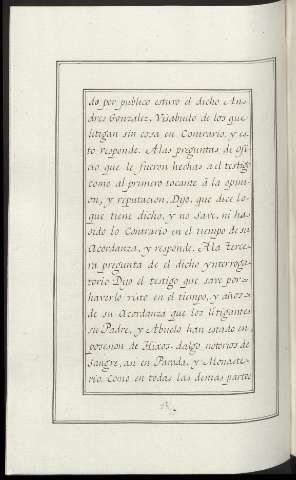 do por publico estuvo el dicho An-
dres Gonzalez, Visabuelo de los que
litigan sin cosa en Contrario, y es-
to responde. Alas preguntas de ofi-
cio que le fueron hechas a el testigo
como al primero tocante â la opini-
on, y reputacion, Dijo, que dice lo-
que tiene dicho, y no save, ni ha s
ido lo Contrario en el tiempo de su
Acordanza, y responde. Ala terce-
ra pregunta de el dicho ynterroga-
torio Dijo el testigo que save por-
haverlo visto en el tiempo, y años-
de su Acordanza que los litigantes
su Padre, y Abuelo han estado en
posesion de Hixos-dalgo notorios de
sangre, asi en Parada, y Monaste-
rio, como en todas las demas partes